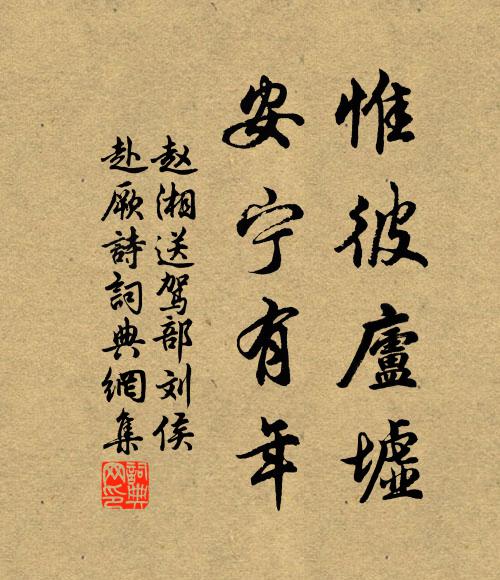 惟彼廬墟
安宁有年
赵湘送驾部刘侯
赴厥詩詞典網集
詞典网印